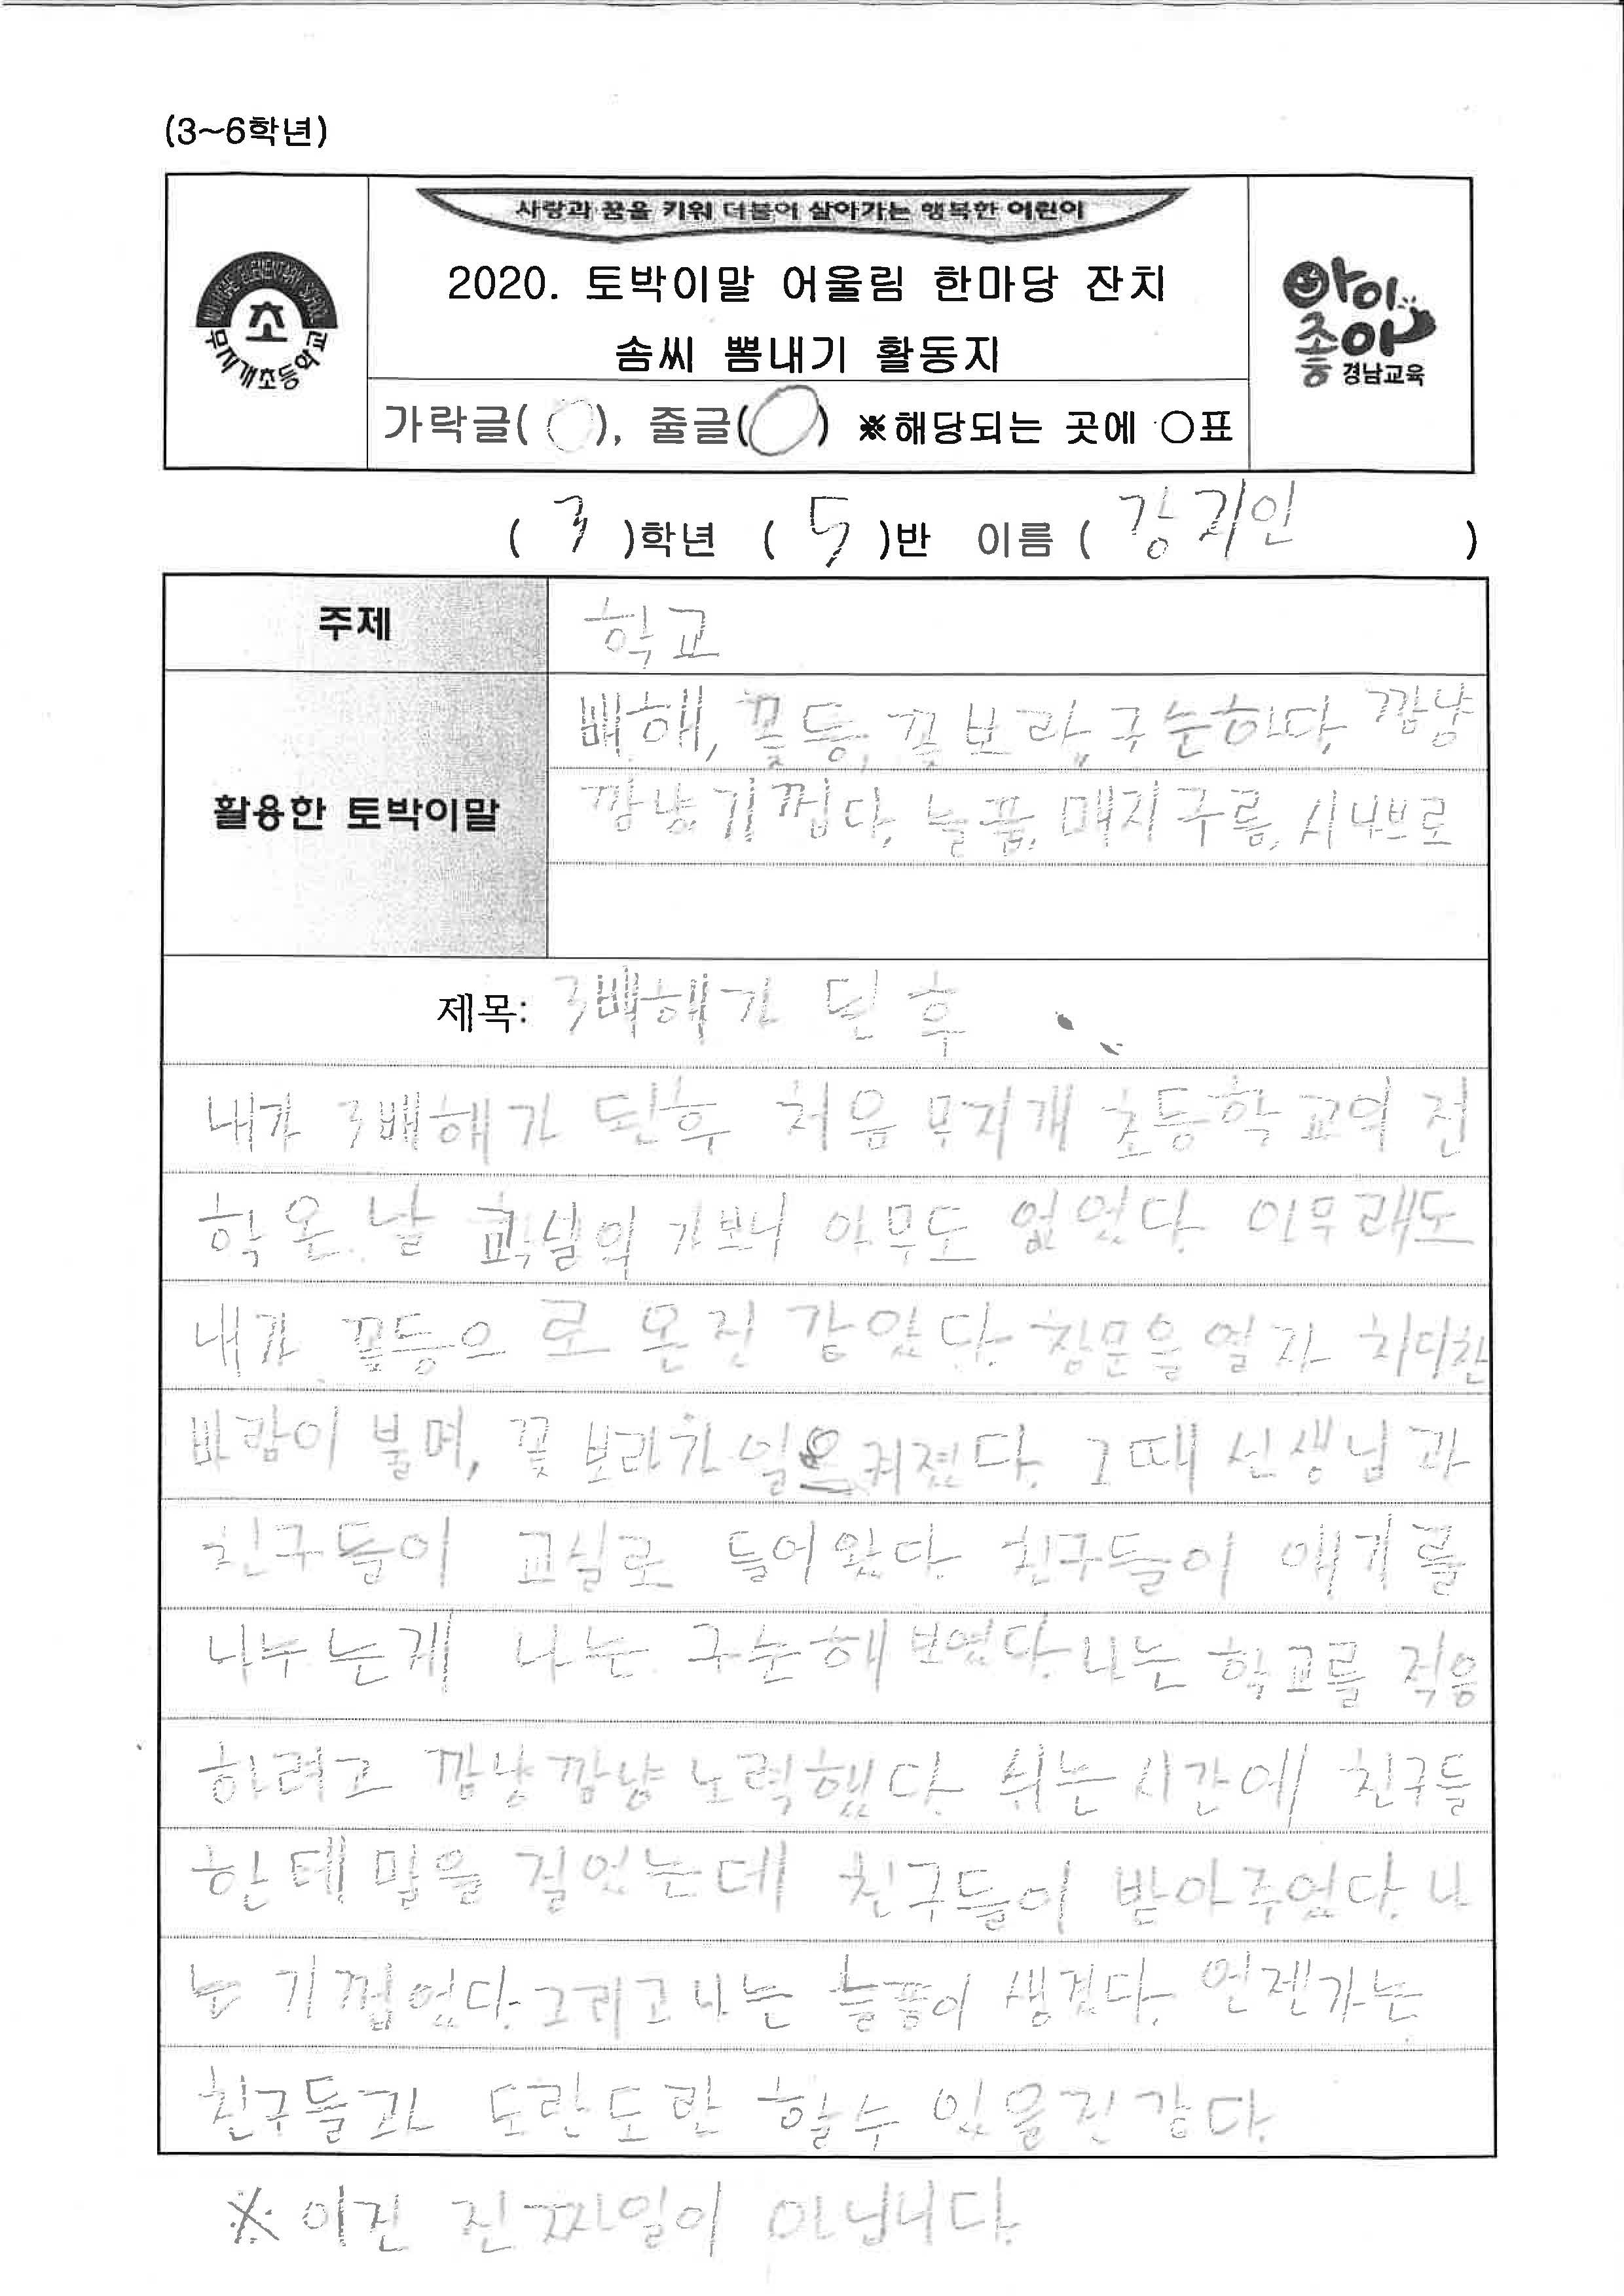 (3~6학년)
사랑과 꿈을 키워 더불어 살아가는 행복한 어린이
2020. 토박이말 어울림 한마당 잔치
솜씨 뽐내기 활동지
MUJIGAE ELEMENTARY SCHOOL
초
무지개초등학교
아이좋아
경남교육
가락글( ), 줄글(○) ※해당되는 곳에 ○표
( 3 )학년 ( 5 )반 이름 ( 강지인 )
주제
학교
활용한 토박이말
빼해, 꽃등, 꽃보라, 구순하다, 깜냥
깜냥, 기껍다, 늘품, 매지구름, 시나브로
제목: 3빼해가 된 후
내가 3빼해가 된후 처음 무지개 초등학교에 전
학 온 날 교실의 가보니 아무도 없었다. 아무래도
내가 꽃등으로 온건 같았다. 창문을 열자 차디찬
바람이 불며, 꽃보라가 일으켜졌다. 그때 선생님과
친구들이 교실로 들어왔다. 친구들이 얘기를
나누는게 나는 구순해 보였다. 나는 학교를 적응
하려고 깜냥깜냥 노력했다. 쉬는 시간에 친구들
한테 말을 걸었는데 친구들이 받아주었다. 나
는 기껍었다. 그리고 나는 늘품이 생겼다. 언젠가는
친구들과 도란도란 할수 있을건 같다.
※ 이건 진짜일이 아닙니다.